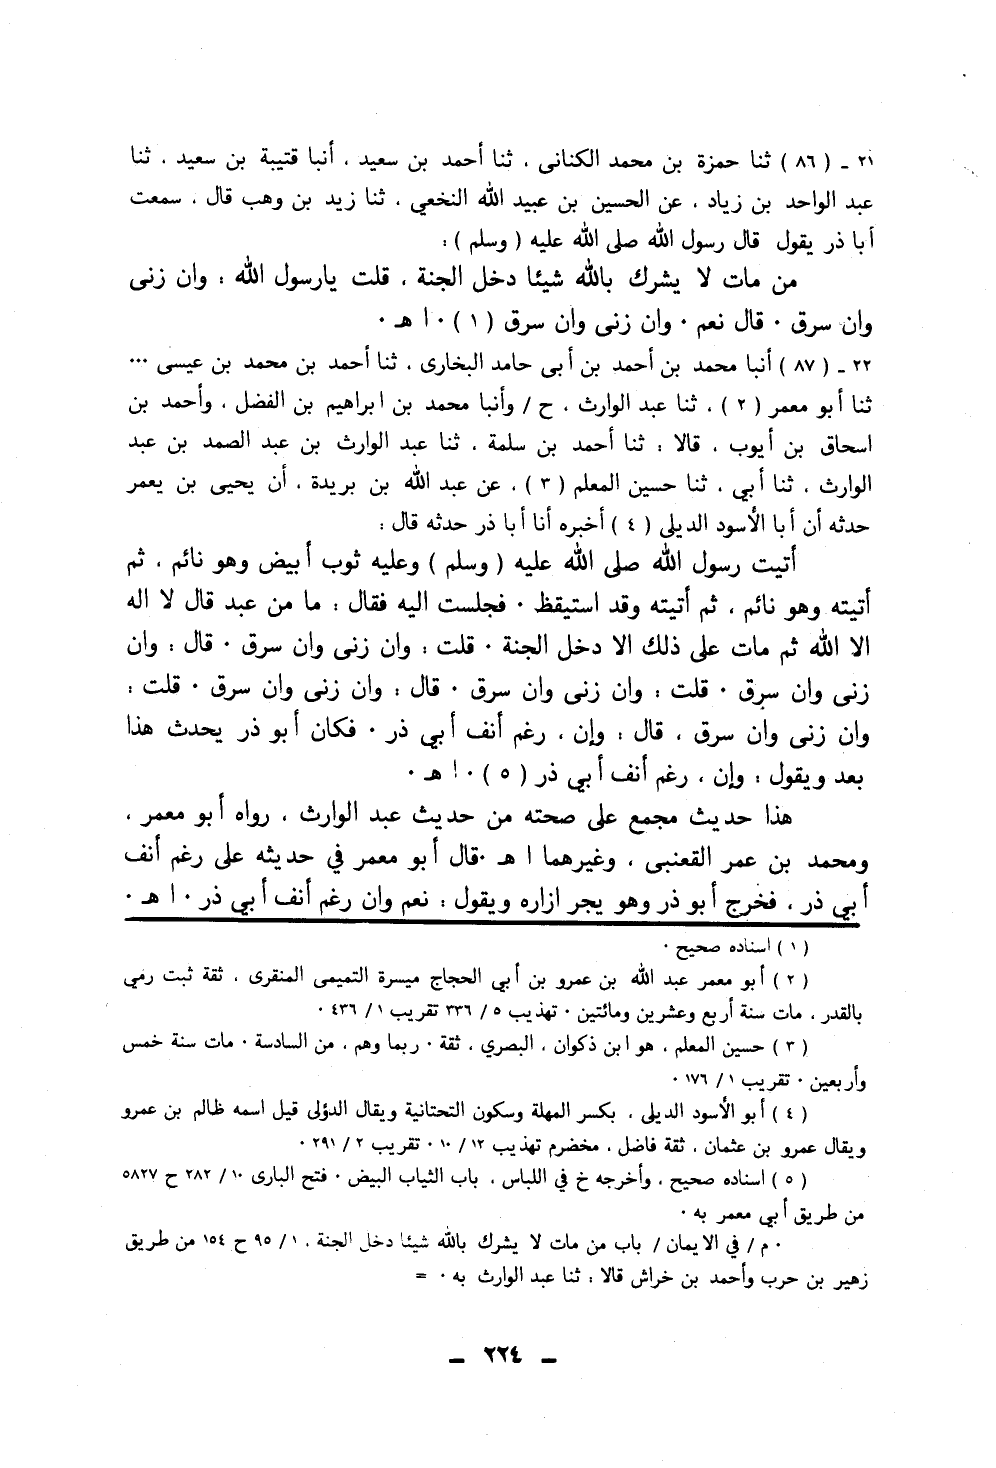 ٢١ ـ ( ٨٦ ) ثنا حمزة بن محمد الكنانى ، ثنا أحمد بن سعيد ، أنبا قتيبة بن سعيد ، ثنا
عبد الواحد بن زياد ، عن الحسين بن عبيد الله النخعي ، ثنا زيد بن وهب قال ، سمعت
أبا ذر يقول قال رسول الله صلى الله عليه ( وسلم ) :
من مات لا يشرك بالله شيئا دخل الجنة ، قلت يارسول الله : وان زنى
وان سرق ٠ قال نعم ٠ وان زنى وان سرق ( ١ ) ٠ ا هـ ٠
٢٢ ـ ( ٨٧ ) أنبا محمد بن أحمد بن أبى حامد البخارى ، ثنا أحمد بن محمد بن عيسى ٠٠٠
ثنا أبو معمر ( ٢ ) ، ثنا عبد الوارث ، ح / وأنبا محمد بن ابراهيم بن الفضل ، وأحمد بن
اسحاق بن أيوب ، قالا : ثنا أحمد بن سلمة ، ثنا عبد الوارث بن عبد الصمد بن عبد
الوارث ، ثنا أبي ، ثنا حسين المعلم ( ٣ ) ، عن عبد الله بن بريدة ، أن يحيى بن يعمر
حدثه أن أبا الأسود الديلى ( ٤ ) أخبره أنا أبا ذر حدثه قال :
أتيت رسول الله صلى الله عليه ( وسلم ) وعليه ثوب أبيض وهو نائم ، ثم
أتيته وهو نائم ، ثم أتيته وقد استيقظ ٠ فجلست اليه فقال : ما من عبد قال لا اله
الا الله ثم مات على ذلك الا دخل الجنة ٠ قلت : وان زنى وان سرق ٠ قال : وان
زنى وان سرق ٠ قلت : وان زنى وان سرق ٠ قال : وان زنى وان سرق ٠ قلت :
وان زنى وان سرق ، قال : وإن ، رغم أنف أبي ذر ٠ فكان أبو ذر يحدث هذا
بعد ويقول : وإن ، رغم أنف أبي ذر ( ٥ ) ٠ ا هـ ٠
هذا حديث مجمع على صحته من حديث عبد الوارث ، رواه أبو معمر ،
ومحمد بن عمر القعنبى ، وغيرهما ا هـ ٠قال أبو معمر في حديثه على رغم أنف
أبي ذر ، فخرج أبو ذر وهو يجر ازاره ويقول : نعم وان رغم أنف أبي ذر ٠ ا هـ ٠
( ١ ) اسناده صحيح ٠
( ٢ ) أبو معمر عبد الله بن عمرو بن أبي الحجاج ميسرة التميمى المنقرى ، ثقة ثبت رمي
بالقدر ، مات سنة أربع وعشرين ومائتين ٠ تهذيب ٥ / ٣٣٦ تقريب ١ / ٤٣٦ ٠
( ٣ ) حسين المعلم ، هو ابن ذكوان ، البصري ، ثقة ٠ ربما وهم ، من السادسة ٠ مات سنة خمس
وأربعين ٠ تقريب ١ / ١٧٦ ٠
( ٤ ) أبو الأسود الديلى ، بكسر المهلة وسكون التحتانية ويقال الدؤلى قيل اسمه ظالم بن عمرو
ويقال عمرو بن عثمان ، ثقة فاضل ، مخضرم تهذيب ١٢ / ١٠ ٠ تقريب ٢ / ٢٩١ ٠
( ٥ ) اسناده صحيح ، وأخرجه خ في اللباس ، باب الثياب البيض ٠ فتح البارى ١٠ / ٢٨٢ ح ٥٨٢٧
من طريق أبي معمر به ٠
٠ م / في الايمان / باب من مات لا يشرك بالله شيئا دخل الجنة ، ١ / ٩٥ ح ١٥٤ من طريق
زهير بن حرب وأحمد بن خراش قالا : ثنا عبد الوارث به ٠ =
ـ ٢٢٤ ـ